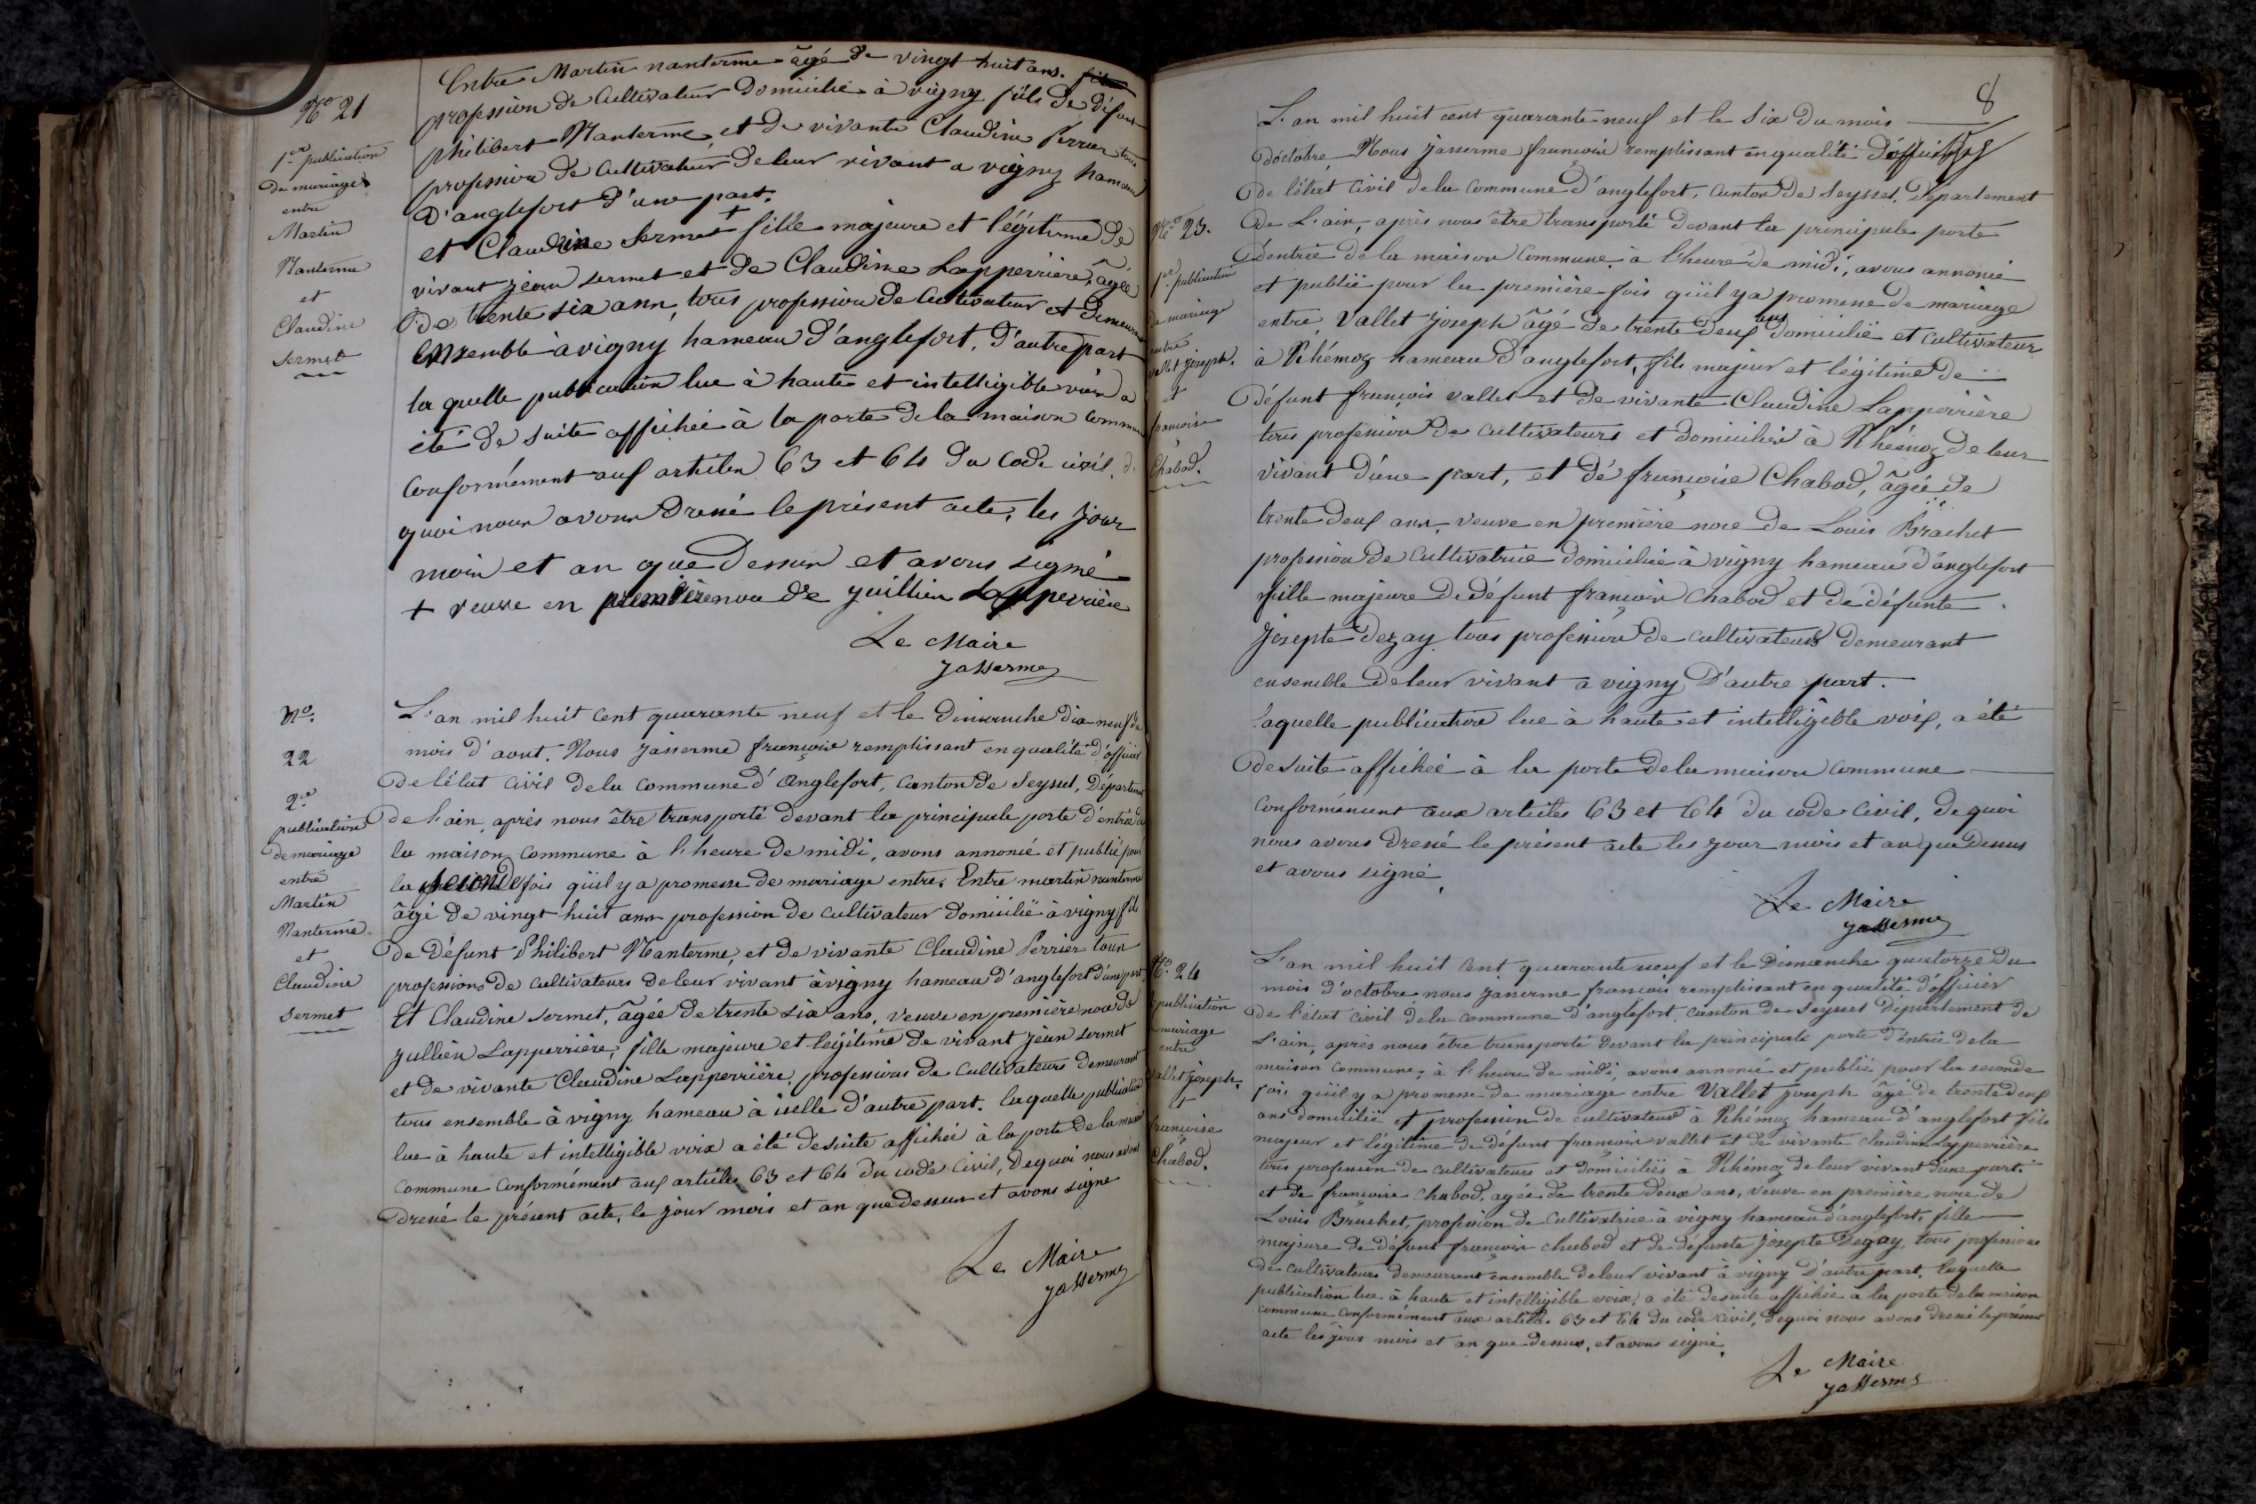 No 21
1ere publication
de mariage
entre
Martin
Nanterme
et
Claudine
Sermet
Entre Martin nanterme âgé de vingt huit ans.
profession de cultivateur domicilié à vigny fils de défunt
philibert Nanterme, et de vivante Claudine Perrier tous
profession de cultivateur de leur vivant a vigny hameau
d'anglefort d'une part.
et Claudine Sermet + fille majeure et légitime de
vivant jean sermet et de Claudine Lapperrière, âgée
de trente six ans, tous profession de cultivateur et demeurant
ensemble à vigny hameau d'anglefort, d'autre part
la quelle publication lue à haute et intelligible voix a
été de suite affichée à la porte de la maison commune
conformément aux articles 63 et 64 du code civil, de
quoi nous avons dressé le présent acte, les jour
mois et an que dessus et avons signé
+ veuve en première noce de jullien Lapperrière
Le Maire
Jasserme
No.
22
2me
publication
de mariage
entre
Martin
Nanterme
et
Claudine
Sermet
L'an mil huit cent quarante neuf et le dimanche dix neuf du
mois d'aout. Nous Jasserme françois remplissant en qualité d'officier
de l'état civil de la commune d'anglefort, canton de Seyssel, Département
de l'ain, après nous être transporté devant la principale porte d'entrée de
la maison commune à l'heure de midi, avons annoncé et publié pour
la seconde fois qu'il y a promesse de mariage entre. Entre martin nanterme
âgé de vingt huit ans profession de cultivateur domicilié à vigny fils
de défunt Philibert Nanterme, et de vivante Claudine Perrier tous
professions de cultivateurs de leur vivant à vigny hameau d'anglefort d'une part
Et Claudine Sermet, âgée de trente six ans, veuve en première noce de
jullien Lapperrière, fille majeure et légitime de vivant jean sermet
et de vivante Claudine Lapperrière, professions de cultivateurs demeurant
tous ensemble à vigny hameau à icelle d'autre part. laquelle publication
lue à haute et intelligible voix a été desuite affichée à la porte de la maison
commune conformément aux articles 63 et 64 du code civil, dequoi nous avons
dressé le présent acte, le jour mois et an que dessus et avons signé
Le Maire
Jasserme
8
No 23.
1re publication
de mariage
entre
vallet joseph.
et
françoise
Chabod.
L'an mil huit cent quarante neuf et le six du mois
d'octobre Nous Jasserme françois remplissant en qualité d'officier
de l'état civil de la commune d'anglefort, canton de Seyssel, Département
de L'ain, après nous être transporté devant la principale porte
d'entrée de la maison commune à l'heure de midi, avons annoncé
et publié pour la première fois qu'il y a promesse de mariage
entre Vallet Joseph âgé de trente deux ans domicilié et cultivateur
à Rhémoz hameau d'anglefort, fils majeur et légitime de
défunt françois vallet et de vivante Claudine Lapperrière
tous profession de cultivateurs et domiciliés à Rhémoz de leur
vivant d'une part, et de françoise Chabod, âgée de
trente deux ans, veuve en première noce de Louis Brachet
profession de cultivatrice domiciliée à vigny hameau d'anglefort
fille majeure de défunt françois chabod et de défunte
Josepte Dezay tous profession de cultivateurs demeurant
ensemble de leur vivant a vigny D'autre part.
laquelle publication lue à haute et intelligible voix, a été
desuite affichée à la porte de la maison commune
conformément aux articles 63 et 64 du code civil, dequoi
nous avons dressé le présent acte les jour mois et an que dessus
et avons signé,
Le Maire
Jasserme
No. 24
publication
mariage
entre
vallet Joseph.
et
françoise
Chabod.
L'an mil huit cent quarante neuf et le Dimanche quatorze du
mois d'octobre nous Jasserme françois remplissant en qualité d'officier
de l'état civil de la commune d'anglefort, canton de Seyssel Département de
L'ain, après nous être transporté devant la principale porte d'entrée de la
maison commune, à l'heure de midi, avons annoncé et publié pour la seconde
fois qu'il y a promesse de mariage entre Vallet joseph âgé de trente deux
ans domicilié et profession de cultivateur à Rhémoz hameau d'anglefort fils
majeur et légitime de défunt françois vallet et de vivante claudine Lapperrière
tous profession de cultivateurs et domiciliés à Rhémoz de leur vivant d'une part.
et de françoise chabod, agée de trente deux ans, veuve en première noce de
Louis Brachet, profession de cultivatrice à vigny hameau d'anglefort, fille
majeure de défunt françois chabod et de défunte Josepte Dezay, tous professions
de cultivateurs demeurant ensemble de leur vivant à vigny D'autre part. laquelle
publication lue à haute et intelligible voix, a été desuite affichée à la porte de la maison
commune conformément aux articles 63 et 64 du code civil, dequoi nous avons dressé le présent
acte les jour mois et an que dessus, et avons signé,
Le Maire
Jasserme